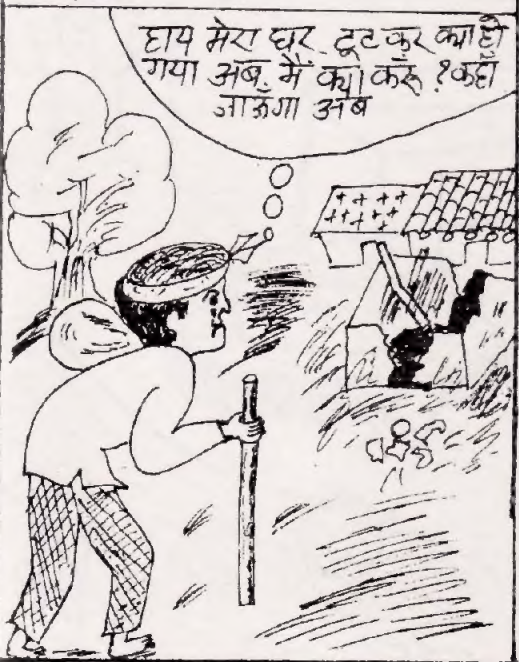 हाय मेरा घर टूट कर क्या हो
गया अब मैं क्या करूं ? कहाँ
जाऊँगा अब